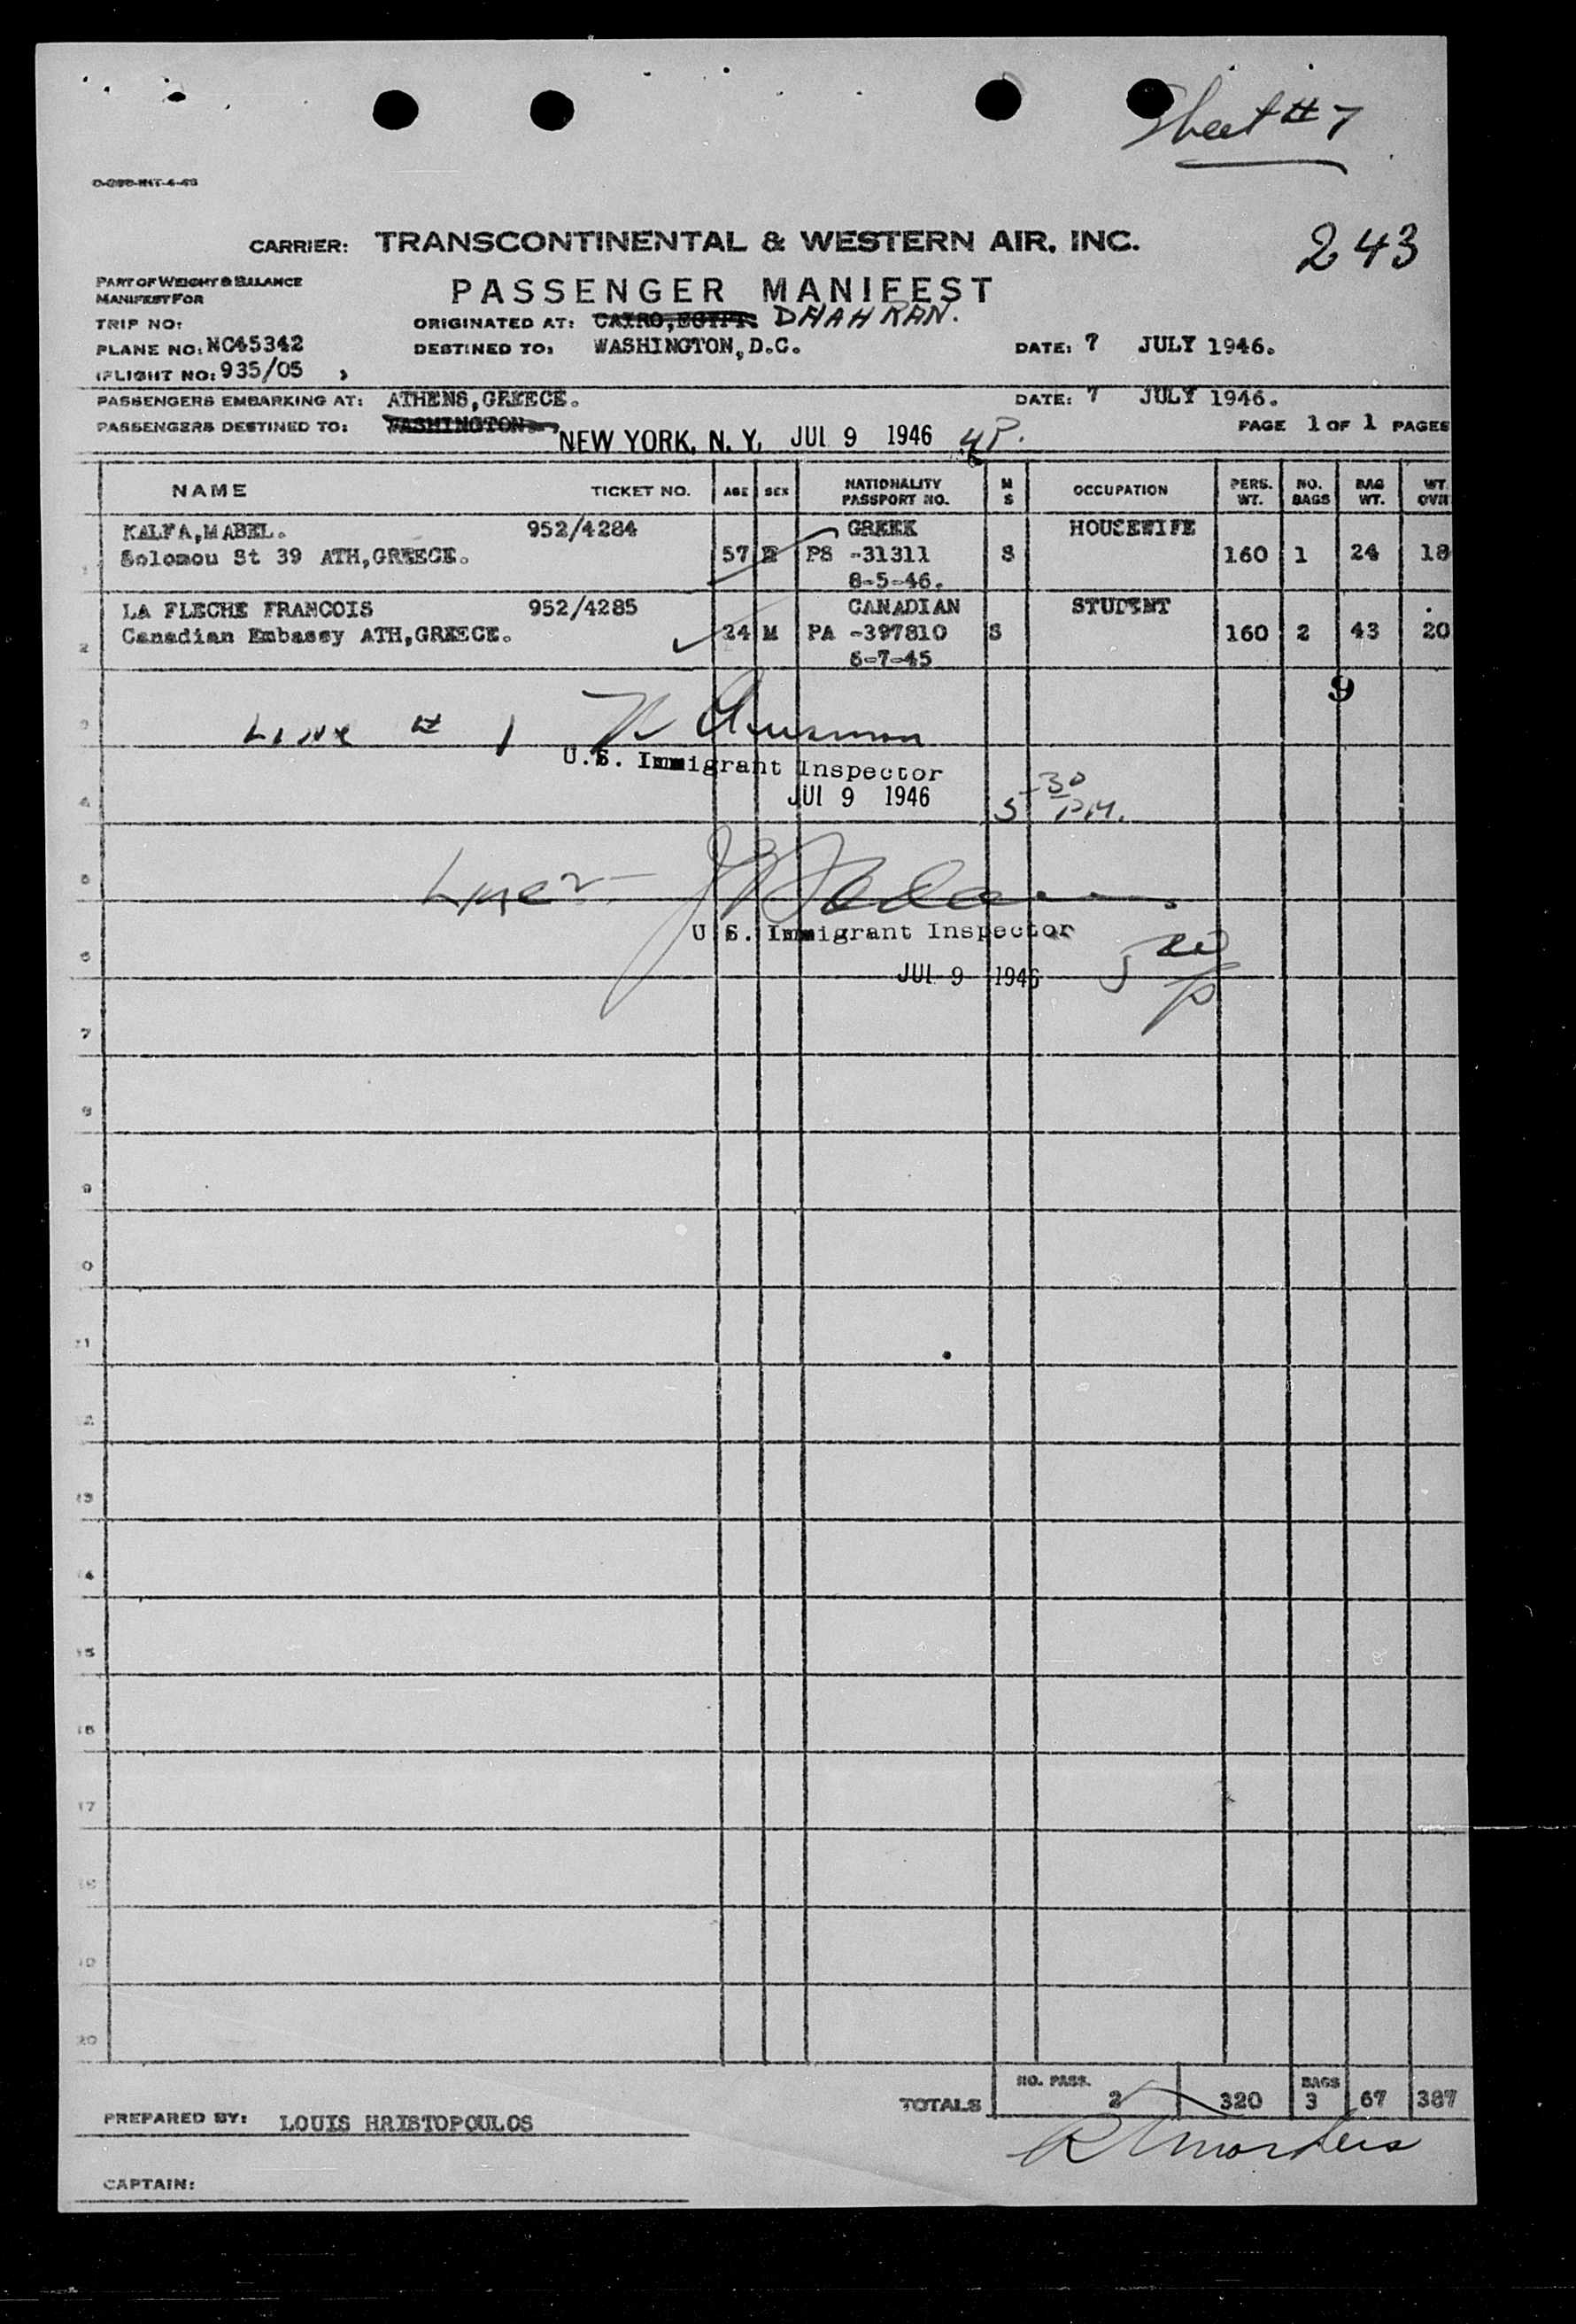 Sheet # 7
243
CARRIER: TRANSCONTINENTAL & WESTERN AIR, INC.
PART OF WEIGHT & BALANCE
MANIFEST FOR
PASSENGER MANIFEST
TRIP NO:
ORIGINATED AT: CAIRO, EGYPT. DHAHRAN.
PLANE NO: NC45342
DESTINED TO: WASHINGTON, D.C.
DATE: 7 JULY 1946.
(FLIGHT NO: 935/05 )
PASSENGERS EMBARKING AT: ATHENS, GREECE.
DATE: 7 JULY 1946.
PASSENGERS DESTINED TO: WASHINGTON NEW YORK, N. Y. JUL 9 1946 4P.
PAGE 1 OF 1 PAGES
NAME TICKET NO. AGE SEX NATIONALITY PASSPORT NO. M S OCCUPATION PERS. WT. NO. BAGS BAG WT. WT. OVR
KALFA, MABEL. 952/4284 GREEK HOUSEWIFE
1 Solomou St 39 ATH, GREECE. 57 PS -31311 S 160 1 24 18
8-5-46.
LA FLECHE FRANCOIS 952/4285 CANADIAN STUDENT
2 Canadian Embassy ATH, GREECE. 24 M PA -397810 S 160 2 43 20
6-7-45
9
3
Line # 1
U.S. Immigrant Inspector
4
JUL 9 1946 5-30 PM.
5
Line 2
U.S. Immigrant Inspector
6
JUL 9 1946
7
8
9
0
11
12
13
14
15
16
17
18
19
20
TOTALS NO. PASS. 2 320 BAGS 3 67 387
PREPARED BY: LOUIS HRISTOPOULOS
CAPTAIN: